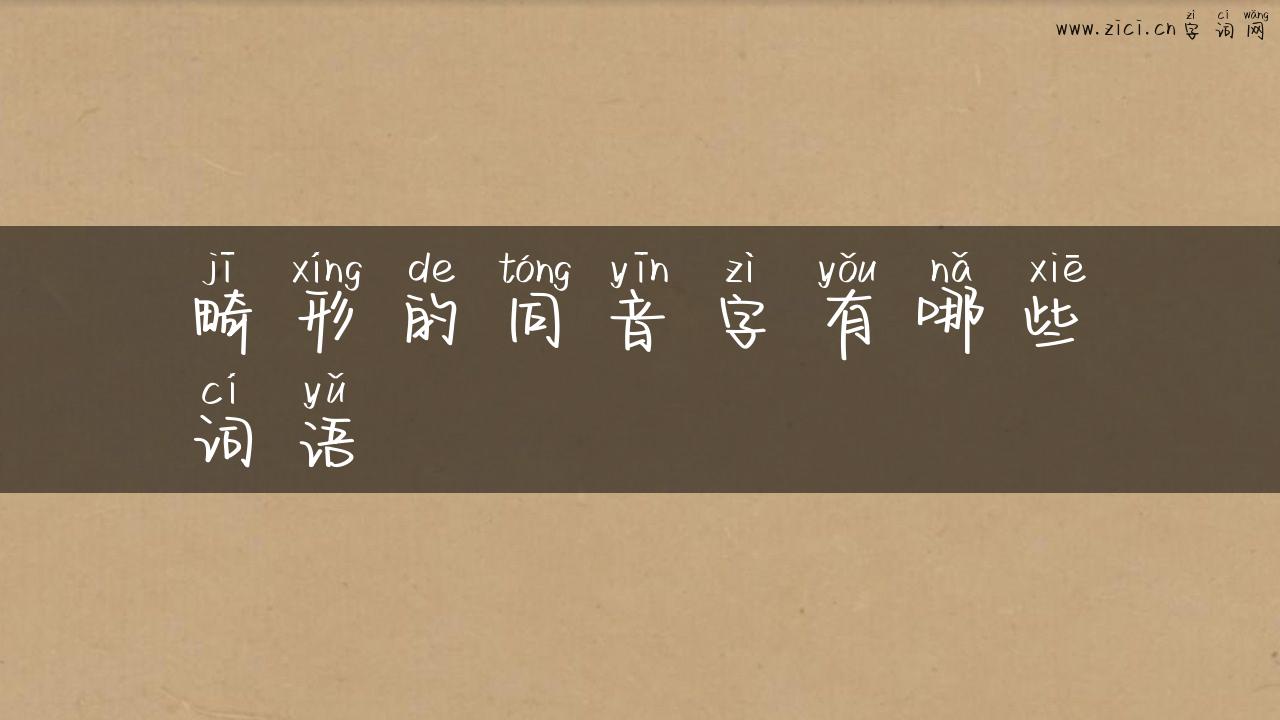 zì cí wǎng
www.zici.cn 字 词 网
jī xíng de tóng yīn zì yǒu nǎ xiē
畸 形 的 同 音 字 有 哪 些
cí yǔ
词 语